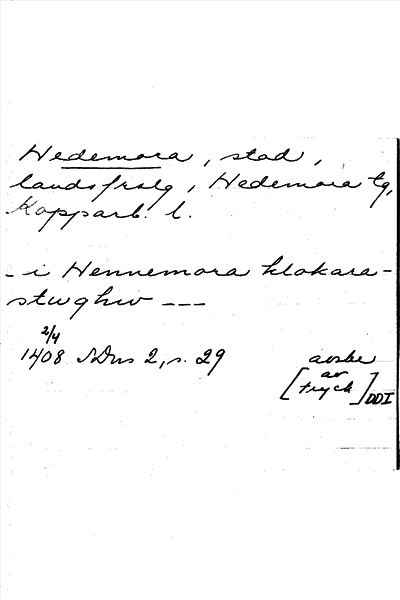 Hedemora, stad,
landsfrslg, Hedemora tg,
Kopparb. l.
- i Hennemora klokara-
stwghw ---
2/4
1408 SDns 2, s. 29
avskr
av
[tryck] DDI